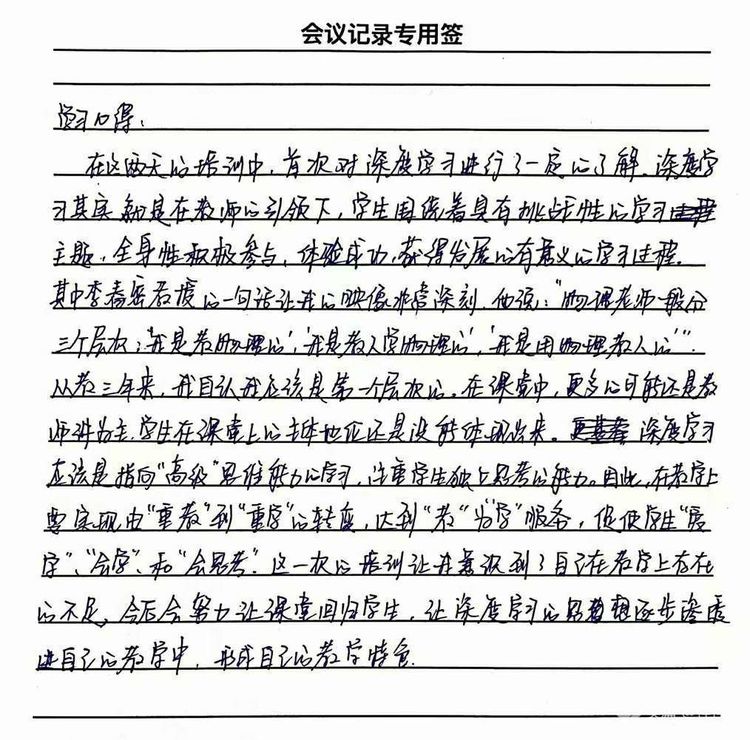 会议记录专用签
学习心得：
在这两天的培训中，首次对深度学习进行了一定的了解，深度学
习其实就是在教师的引领下，学生围绕着具有挑战性的学习
主题，全身性积极参与，体验成功，获得发展的有意义的学习过程。
其中李春密教授的一句话让我的映像非常深刻，他说：“物理老师一般分
三个层次：‘我是教物理的’，‘我是教人学物理的’，‘我是用物理教人的’”.
从教三年来，我自认我应该是第一个层次的。在课堂中，更多的可能还是教
师讲为主，学生在课堂上的主体地位还是没能体现出来。深度学习
应该是指向“高级”思维能力的学习，注重学生独立思考的能力。因此，在教学上
要实现由“重教”到“重学”的转度，达到“教”为“学”服务，促使学生“爱
学”、“会学”、和“会思考”。这一次的培训让我意识到了自己在教学上存在
的不足，今后会努力让课堂回归学生，让深度学习的思想逐步渗透
进自己的教学中，形成自己的教学特色.